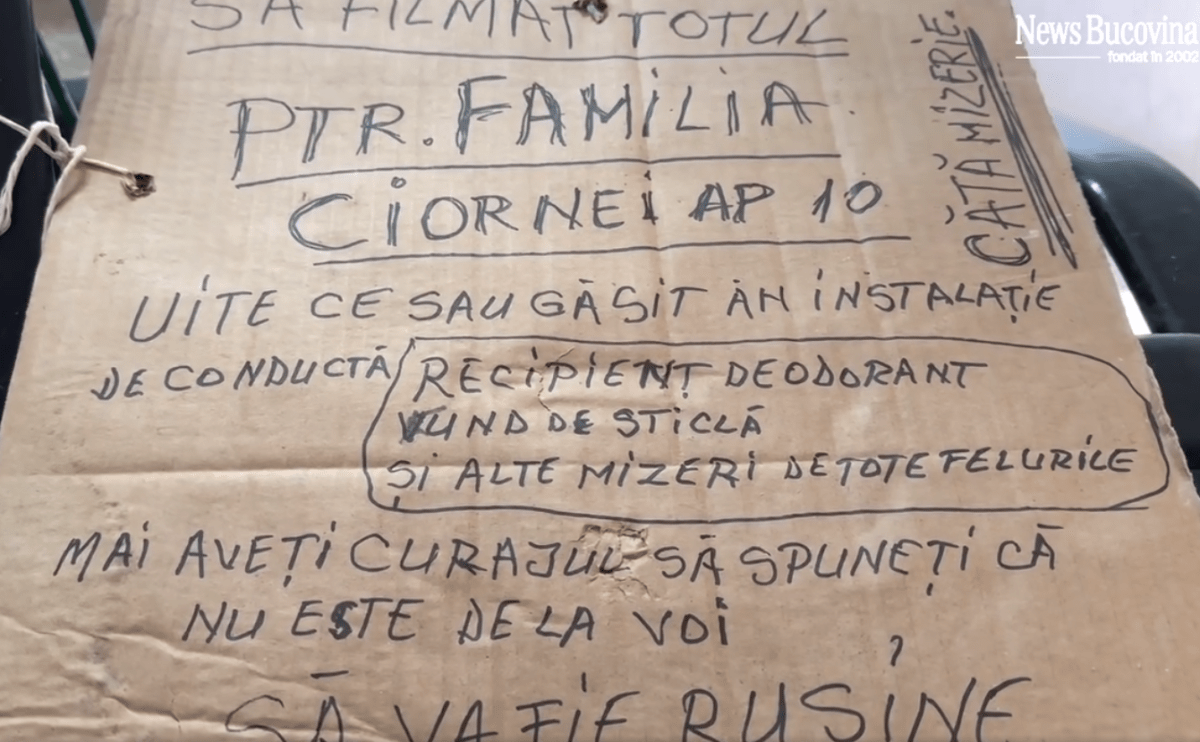 SA FILMAT TOTUL
PTR. FAMILIA
CIORNEI AP 10
UITE CE SAU GĂSIT ÀN INSTALAȚIE
DE CONDUCTĂ RECIPIENT DEODORANT
VUND DE STICLĂ
ȘI ALTE MIZERI DE TOTE FELURILE
MAI AVEȚI CURAJUL SĂ SPUNEȚI CĂ
NU ESTE DE LA VOI
SĂ VA FIE RUSINE
CÂTĂ MIZERIE.
News Bucovina
fondat în 2002